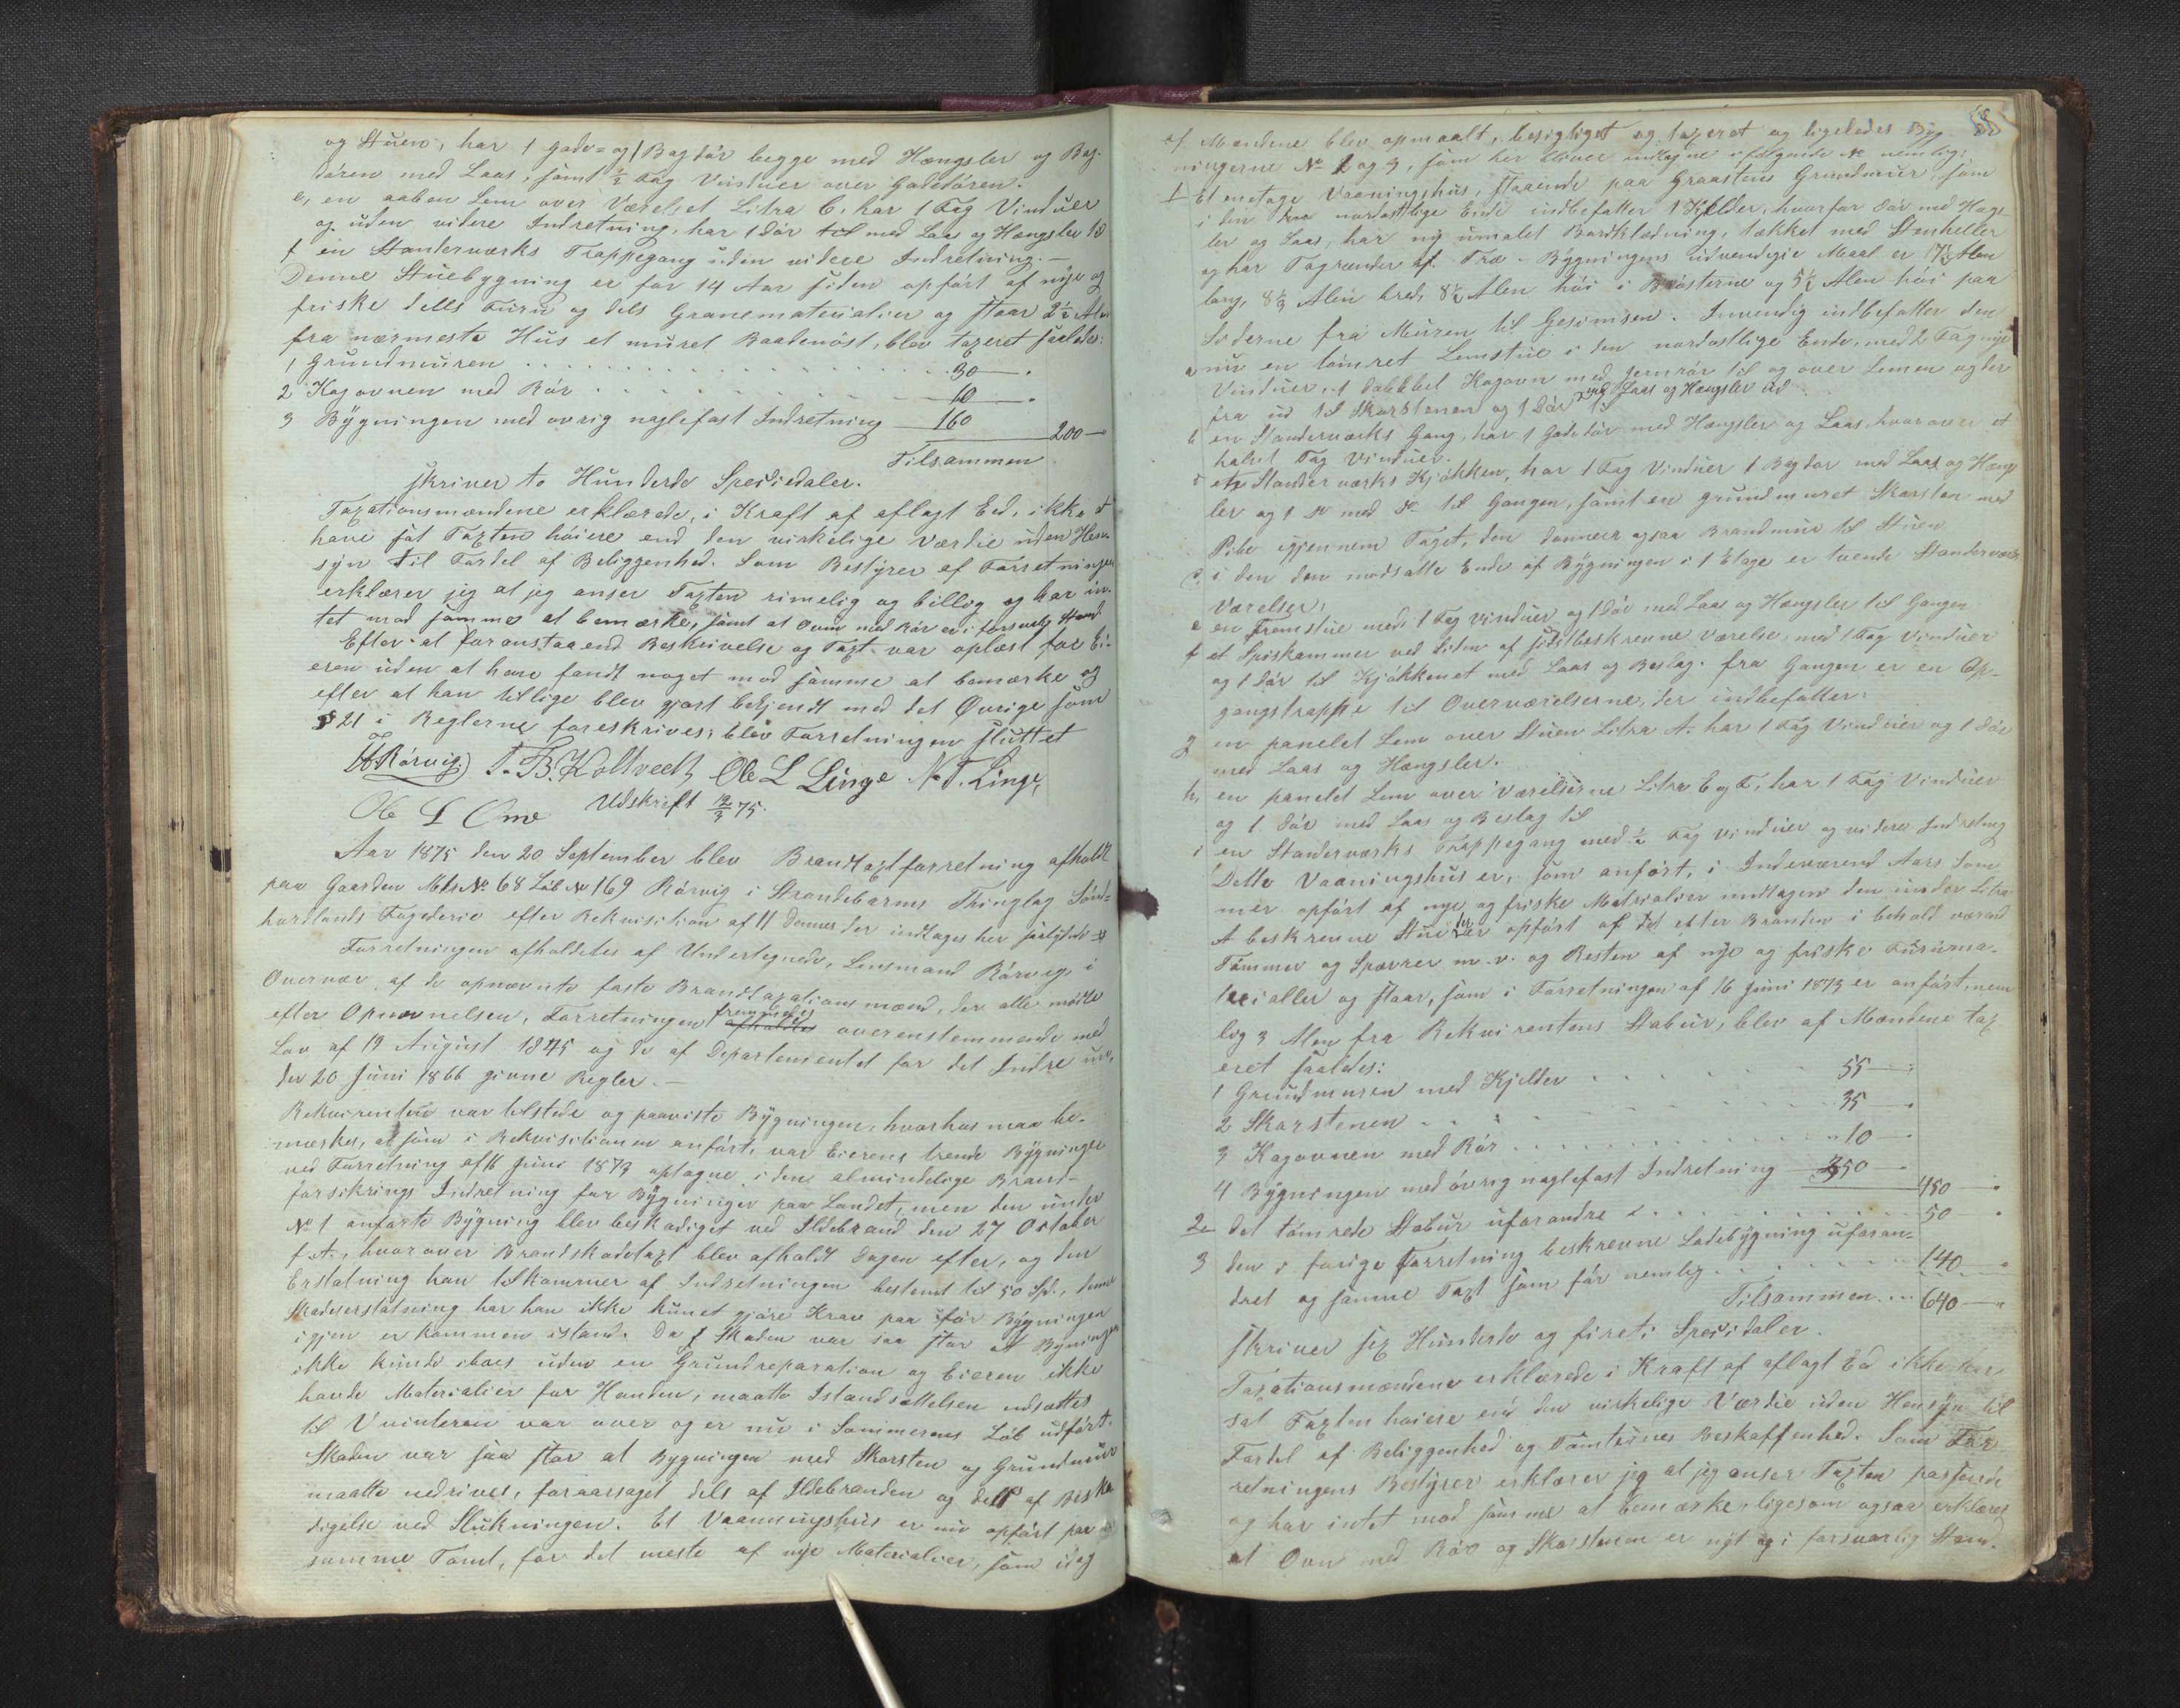 og Stuen, har 1 Gade= og 1 Bagdør begge med Hængsler og Bag-
døren med Laas, samt ½ Fag Vinduer over Gadedøren.
e, en aaben Lem over Værelset Litra C. har 1 Fag Vinduer
og uden videre Indretning, har 1 Dør til med Laas og Hængsler
f en Standerværks Trappegang uden videre Indretning.—
Denne Stuebygning er for 14 Aar siden opført af nye og
friske dells Furu og dels Granematerialier og staar 2½ Alen
fra nærmeste Hus et muret Baadenøst, blev taxeret saaledes:
1 Grundmuren . . . 30
2 Kagovnen med Rør . . . 10
3 Bygningen med øvrig naglefast Indretning 160
Tilsammen 200
skriver to Hunderde Speciedaler.
Taxationsmændene erklærede, i Kraft af aflagt Eed, ikke at
have sat Taxten høiere end den virkelige Værdie uden Hen-
syn til Fordel af Beliggenhed. Som Bestyrer af Forretningen
erklærer jeg at jeg anser Taxten rimelig og billig og har in-
tet mod samme at bemærke, samt at Ovn med Rør er i forsvarlig Stand
Efter at foranstaaend Beskrivelse og Taxt var oplæst for Ei-
eren uden at have fandt noget mod samme at bemærke og
efter at han tillige blev gjort bekjendt med det Øvrige som
§ 21 i Reglerne foreskrives; blev Forretningen sluttet
Rørvig. T. B. Holtveth Ole L Linge N. T. Linge,
Ole L Omo Udskrift 12/3 75.
Aar 1875 den 20 September blev Brandtaxtforretning afholdt
paa Gaarden Mts№. 68 Løb № 169 Rørvig i Strandebarms Thinglag Sønd-
hordlands Fogederie efter Rekvisition af 11 dennes der indtages her
Forretningen afholdtes af Undertegnede, Lensmand Rørvig, i
Overvær af de opnævnte faste Brandtaxationsmænd, der alle mødte
efter Opnævnelsen, Forretningen fremmedes afholdtes overenstemmende med
Lov af 19 August 1845 og de af Departementet for det Indre un-
der 20 Juni 1866 givne Regler.—
Rekvirenten var tilstede og paaviste Bygningen, hvorhos maa be-
mærkes, at som i Rekvisitionen anført, var Eierens trende Bygninger
ved Forretning af 16 Juni 1873 optagne i den almindelige Brand-
forsikrings Indretning for Bygninger paa Landet, men den under
№ 1 anførte Bygning blev beskadiget ved Ildebrand den 27 October
f. A., hvorover Brandskadetaxt blev afholdt Dagen efter, og den
Erstatning han tilkommer af Indretningen bestemt til 50 Spd., denne
Skadeserstatning har han ikke kunet gjøre Krav paa før Bygningen
igjen er kommen istand. Da Skaden var saa stor at Bygningen
ikke kunde iboes uden en Grundreparation og Eieren ikke
havde Materialier for Haanden, maatte Istandsættelsen udsættes
til Vvinteren var over og er nu i Sommerens Løb udført.
Skaden var saa stor at Bygningen med Skorsten og Grundmuur
maatte nedrives, foraarsaget dels af Ildebranden og dels af Beska-
digelse ved Slukningen. Et Vaaningshus er nu opført paa
samme Tomt, for det meste af nye Materialier, som idag
68
af Mændene blev opmaalt, besigtiget og taxeret og ligeledes Byg-
ningerne № 2 og 3, som her bliver indtagne i følgende № nemlig:
1 Et enetage Vaaningshus, staaende paa Graastens Grundmur, som
i den nordostlige Ende indbefatter 1 Kjelder, hvorfor Dør med Hængs-
ler og Laas, har ny umalet Bordklædning, tækket med Stenheller
og har Tagrender af Træ. Bygningens udvendige Maal er 17½ Alen
lang, 8½ Alen bred, 8½ Alen høi i Brøsterne og 5½ Alen høi paa
Siderne fra Muren til Gesimsen. Invendig indbefatter den
a nu en tømret Lemstue i den nordostlige Ende, med 2 Fag nye
Vinduer, 1 dobbbel Kagovn med Jernrør til og over Lemen og der
fra ud til Skorstenen og 1 Dør med Laas og Hængsler ud til
b en Standerværks Gang, har 1 Gadedør med Hængsler og Laas, hvorover et
halvt Fag Vinduer.
c et Standerværks Kjøkken, har 1 Fag Vinduer 1 Bagdør med Laas og Hængs-
ler og 1 do med do til Gangen, samt en grundmuret Skorsten med
Pibe igjennem Taget, den danner ogsaa Brandmur til Stuen
d, i den den modsatte Ende af Bygningen i 1 Etage er tvende Standerværks
Værelser:
e en Fremstue med 1 Fag Vinduer og 1 Dør med Laas og Hængsler til Gangen
f et Spiskammer ved Siden af sidstbeskrevne Værelse, med 1 Fag Vinduer
og 1 Dør til Kjøkkenet med Laas og Beslag. fra Gangen er en Op-
gangstrappe til Overværelserne, der indbefatter:
g en panelet Lem over Stuen Litra A. har 1 Fag Vinduer og 1 Dør
med Laas og Hængsler.
h, en panelet Lem over Værelserne Litra E og F, har 1 Fag Vinduer
og 1 Dør med Laas og Beslag til
i en Standerværks Trappegang med ½ Fag Vinduer og videre Indretning
Dette Vaaningshus er, som anført, i Indeværend Aars Som
mer opført af nye og friske Materialier undtagen den under Litra
A beskrevne Stue der er opført af det efter Branden i behold værend
Tømmer og Sparrer m. v. og Resten af nye og friske Furuma-
terialier og staar, som i Forretningen af 16 Juni 1873 er anført, nem
lig 3 Alen fra Rekvirentens Stabur, blev af Mændene tax
eret saaledes:
1 Grundmuren med Kjelder . . . 55
2 Skorstenen . . . 35
3 Kagovnen med Rør . . . 10
4 Bygningen med øvrig naglefast Indretning 350 450
2 det tømrede Stabur uforandre . . . 50
3 den i forige Forretning beskrevne Ladebygning uforan-
dret og samme Taxt som før nemlig . . . 140
Tilsammen . . . 640
skriver sex Hunderde og fireti Specidaler.
Taxationsmændene erklærede i Kraft af aflagt Ed ikke har
sat Taxten høiere end den virkelige Værdie uden Hensyn til
Fordel af Beliggenhed og Tomternes Beskaffenhed. Som For
retningens Bestyrer erklærer jeg at jeg anser Taxten passende
og har intet mod samme at bemærke, ligesom ogsaa erklæres
at Ovn med Rør og Skorstenen er nyt og i forsvarlig Stand.